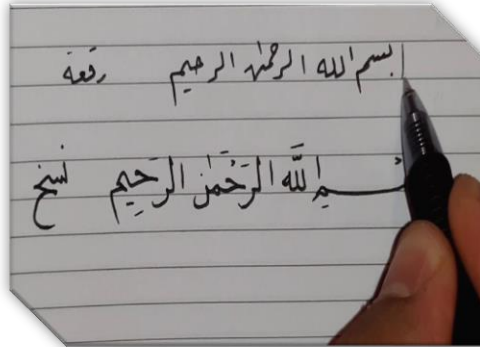 بسم الله الرحمن الرحيم رقعة
بِسْمِ اللَّه الرَّحْمَن الرَّحِيم نسخ